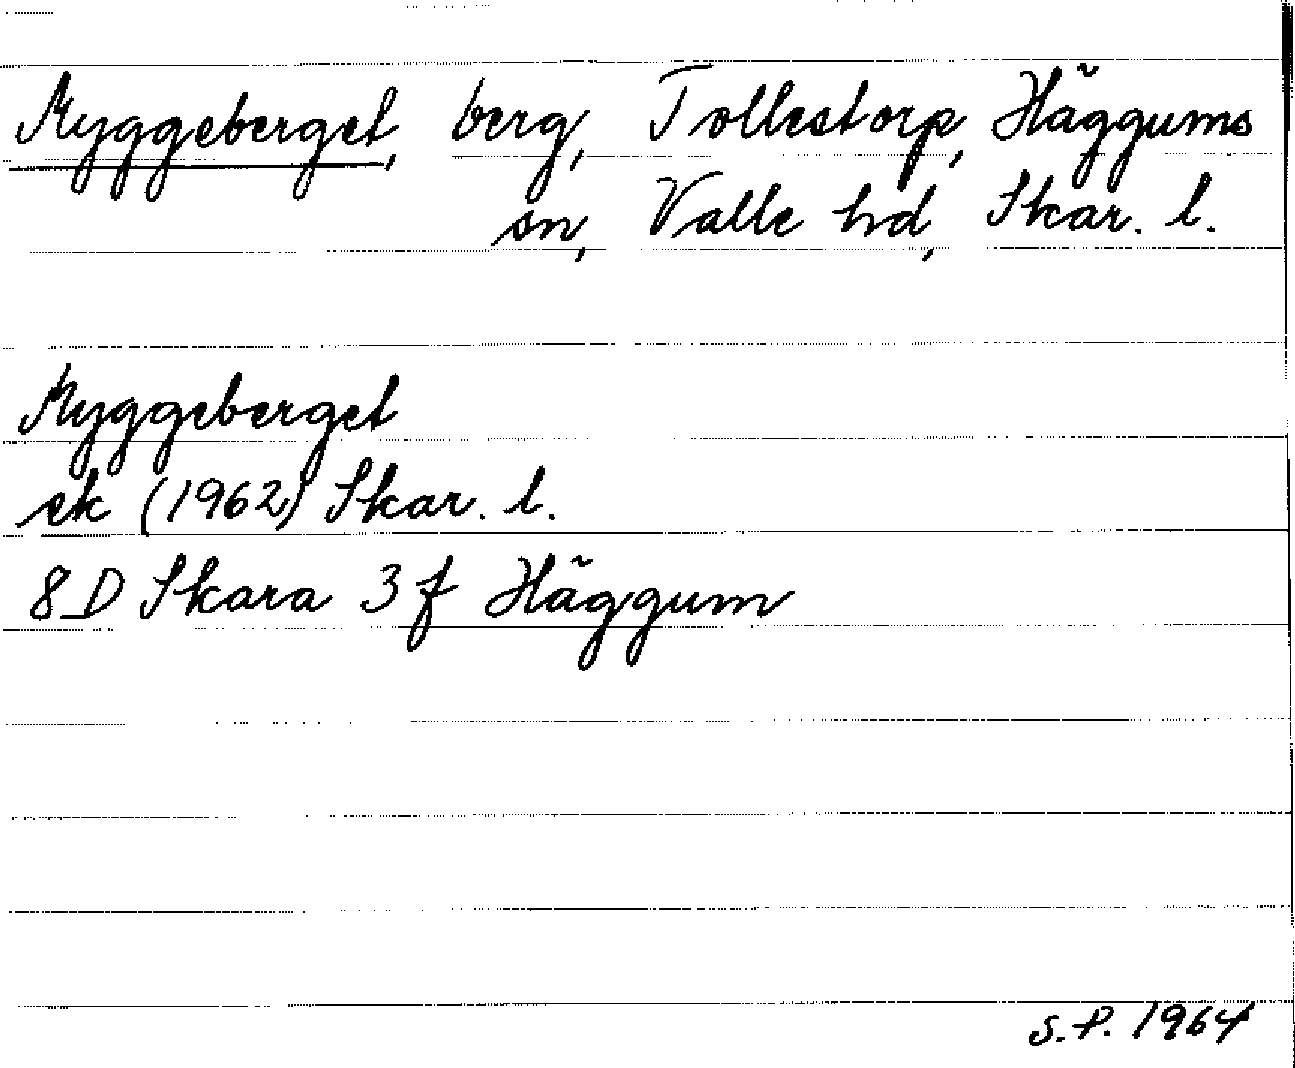 Myggeberget, berg, Tollestorp, Häggums
sn, Valle hd, Skar. l.
Myggeberget
ek (1962) Skar. l.
8D Skara 3f Häggum
S.P. 1964